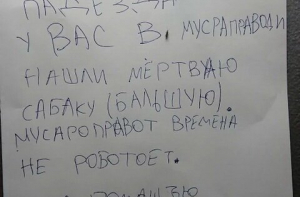 У ВАС В МУСРАПРАВОДИ
НАШЛИ МЁРТВАЮ
САБАКУ (БАЛЬШУЮ).
МУСАРОПРАВОТ ВРЕМЕНА
НЕ РОБОТОЕТ.